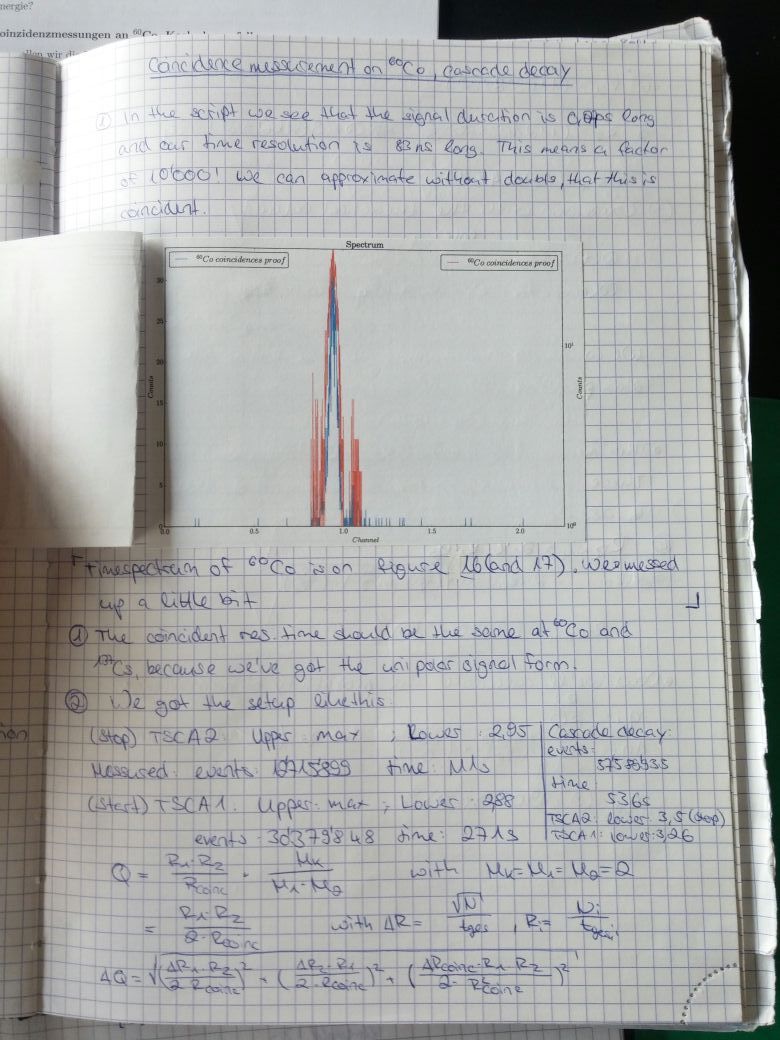 nergie?
oinzidenzmessungen an ⁶⁰Co
Coincidence messurement on ⁶⁰Co, cascade decay
① In the script we see that the signal duration is ps long
and our time resolution is 83 ns long. This means a factor
of 10'000! We can approximate without double, that this is
coincident.
Spectrum
⁶⁰Co coincidences proof
⁶⁰Co coincidences proof
30
25
20
15
10
5
0
Counts
10¹
10⁰
Counts
0.0 0.5 1.0 1.5 2.0
Channel
Timespectrum of ⁶⁰Co is on figure 16 (and 17). We messed
up a little bit
① The coincident res. time should be the same at ⁶⁰Co and
¹³⁷Cs, because we've got the unipolar signal form.
② We got the setup like this:
(Stop) TSCA2: Upper: max ; Lower: 2,95
Messured: events: time:
(Start) TSCA1: Upper: max ; Lower: 2,88
events: 30'379'848 time: 271s
Cascade decay:
events:
time
536s
TSCA2: lower: 3,5 (stop)
TSCA1: lower: 3,26
Q = R₁·R₂ / Rcoinc · Mk / M₁·M₂ with Mk = M₁ = M₂ = 2
= R₁·R₂ / 2·Rcoinc with ΔR = √N / tges , Ri = Ni / tges,i
ΔQ = √((ΔR₁·R₂ / 2·Rcoinc)² + (ΔR₂·R₁ / 2·Rcoinc)² + (ΔRcoinc·R₁·R₂ / 2·R²coinc)²)